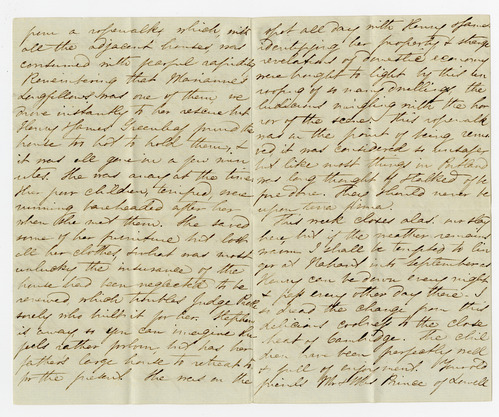 from a ropewalk which with
all the adjacent houses was
consumed with fearful rapidity
Remembering that Marianne
Longfellow's was one of them we
drove instantly to her rescue but
Henry James Greenleaf found the
house too hot to hold them, &
it was all gone in a few min
utes. She was away at the time
& her poor children, terrified were
running bareheaded after her
when she met them. She saved
some of her furniture but lost
all her clothes, & what was most
unlucky the insurance of the
house had been neglected to be
renewed which troubles Judge Potter
sorely who built it for her. Stephen
is away so you can imagine she
feels rather forlorn but has her
father's large house to retreat to
for the present. She was on the
spot all day with Henry & James
identifying her property & strange
revelations of domestic economy
were brought to light by this un
roofing of so many dwellings, the
ludicrous mingling with the hor
ror of the scene. This ropewalk
was on the point of being remov
ed it was considered so unsafe,
but like most things in Portland
was long thought of & talked of be
fore done. They should never be
upon terra firma.
This week closes alas our stay
here, but if the weather remains
warm I shall be tempted to lin
ger at Nahant into September as
Henry can be down every night
& Papa every other day there.
I dread the change from this
delicious coolness to the close
heat of Cambridge. The chil
dren have been perfectly well
& full of enjoyment. Your old
friends Mr & Mrs Prince of Lowell